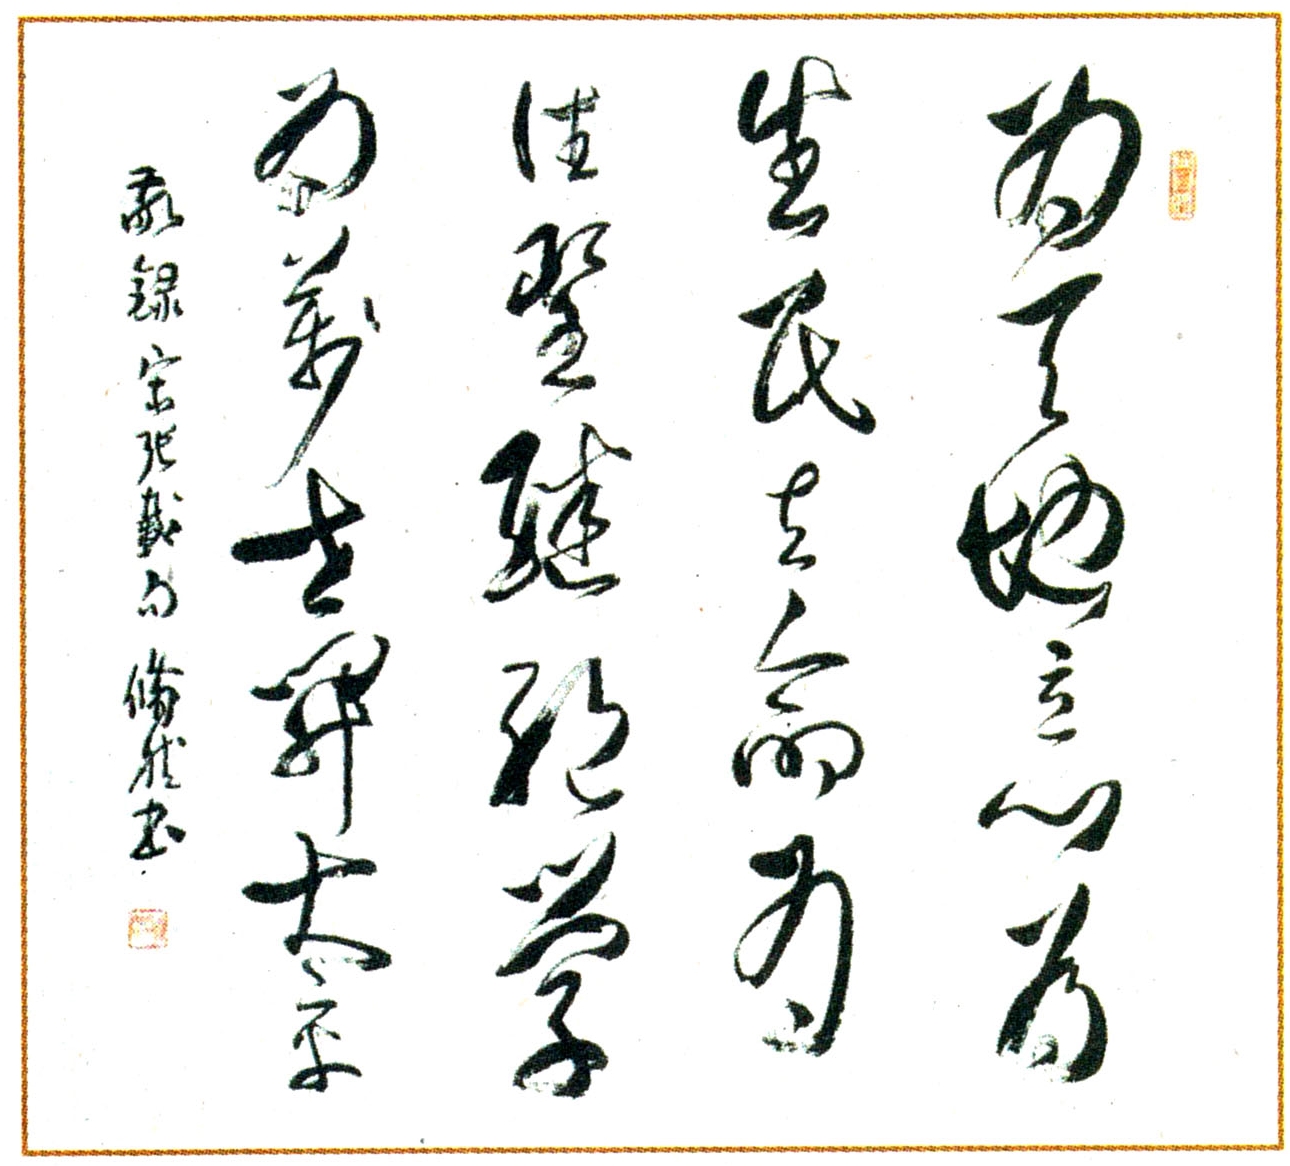 為天地立心為
生民立命為
往聖繼絕學
為萬世開太平
敬錄宋張載句 書